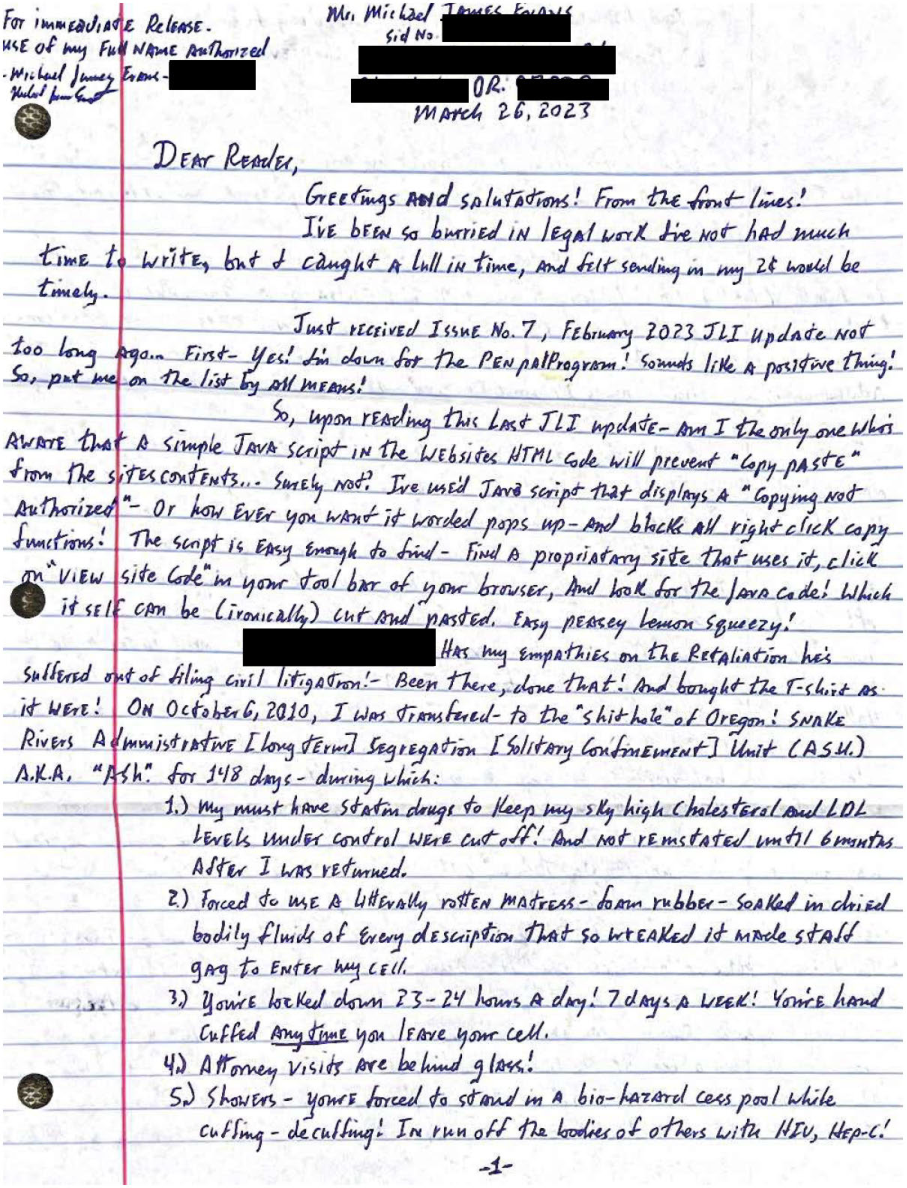 For immediate Release.
use of my Full Name Authorized
- Michael James Evans -
Mr. Michael James Evans
Sid No.
OR.
March 26, 2023
Dear Reader,
Greetings and salutations! From the front lines!
I've been so burried in legal work I've not had much
time to write, but I caught a lull in time, and felt sending in my 2¢ would be
timely.
Just received Issue No. 7, February 2023 JLI update not
too long ago... First- Yes! I'm down for the PEN palProgram! Sounds like a positive thing!
So, put me on the list by all means!
So, upon reading this last JLI update- am I the only one who's
aware that a simple Java script in the websites HTML code will prevent "copy paste"
from the sites contents... Surely not? I've used Java script that displays a "Copying not
Authorized" - Or how ever you want it worded pops up - and blocks all right click copy
functions! The script is easy enough to find - Find a propriatary site that uses it, click
on "View site Code" in your tool bar of your browser, And look for the Java code! Which
it self can be (ironically) cut and pasted. Easy peasey lemon squeezy!
Has my empathies on the Retaliation he's
suffered out of filing civil litigation! - Been there, done that! And bought the T-shirt as
it were! On October 6, 2010, I was transfered - to the "shit hole" of Oregon! Snake
Rivers Administrative [long term] Segregation [Solitary Confinement] Unit (A.S.U.)
A.K.A. "Ash" for 148 days - during which:
1.) my must have statin drugs to keep my sky high Cholesterol and LDL
levels under control were cut off! And not reinstated until 6 months
after I was returned.
2.) Forced to use a litterally rotten matress - foam rubber - soaked in dried
bodily fluids of every description that so wreaked it made staff
gag to enter my cell.
3.) You're locked down 23-24 hours a day! 7 days a week! You're hand
cuffed any time you leave your cell.
4.) Attorney visits are behind glass!
5.) Showers - you're forced to stand in a bio-hazard cess pool while
cuffing - decuffing! In run off the bodies of others with HIV, Hep-C!
-1-